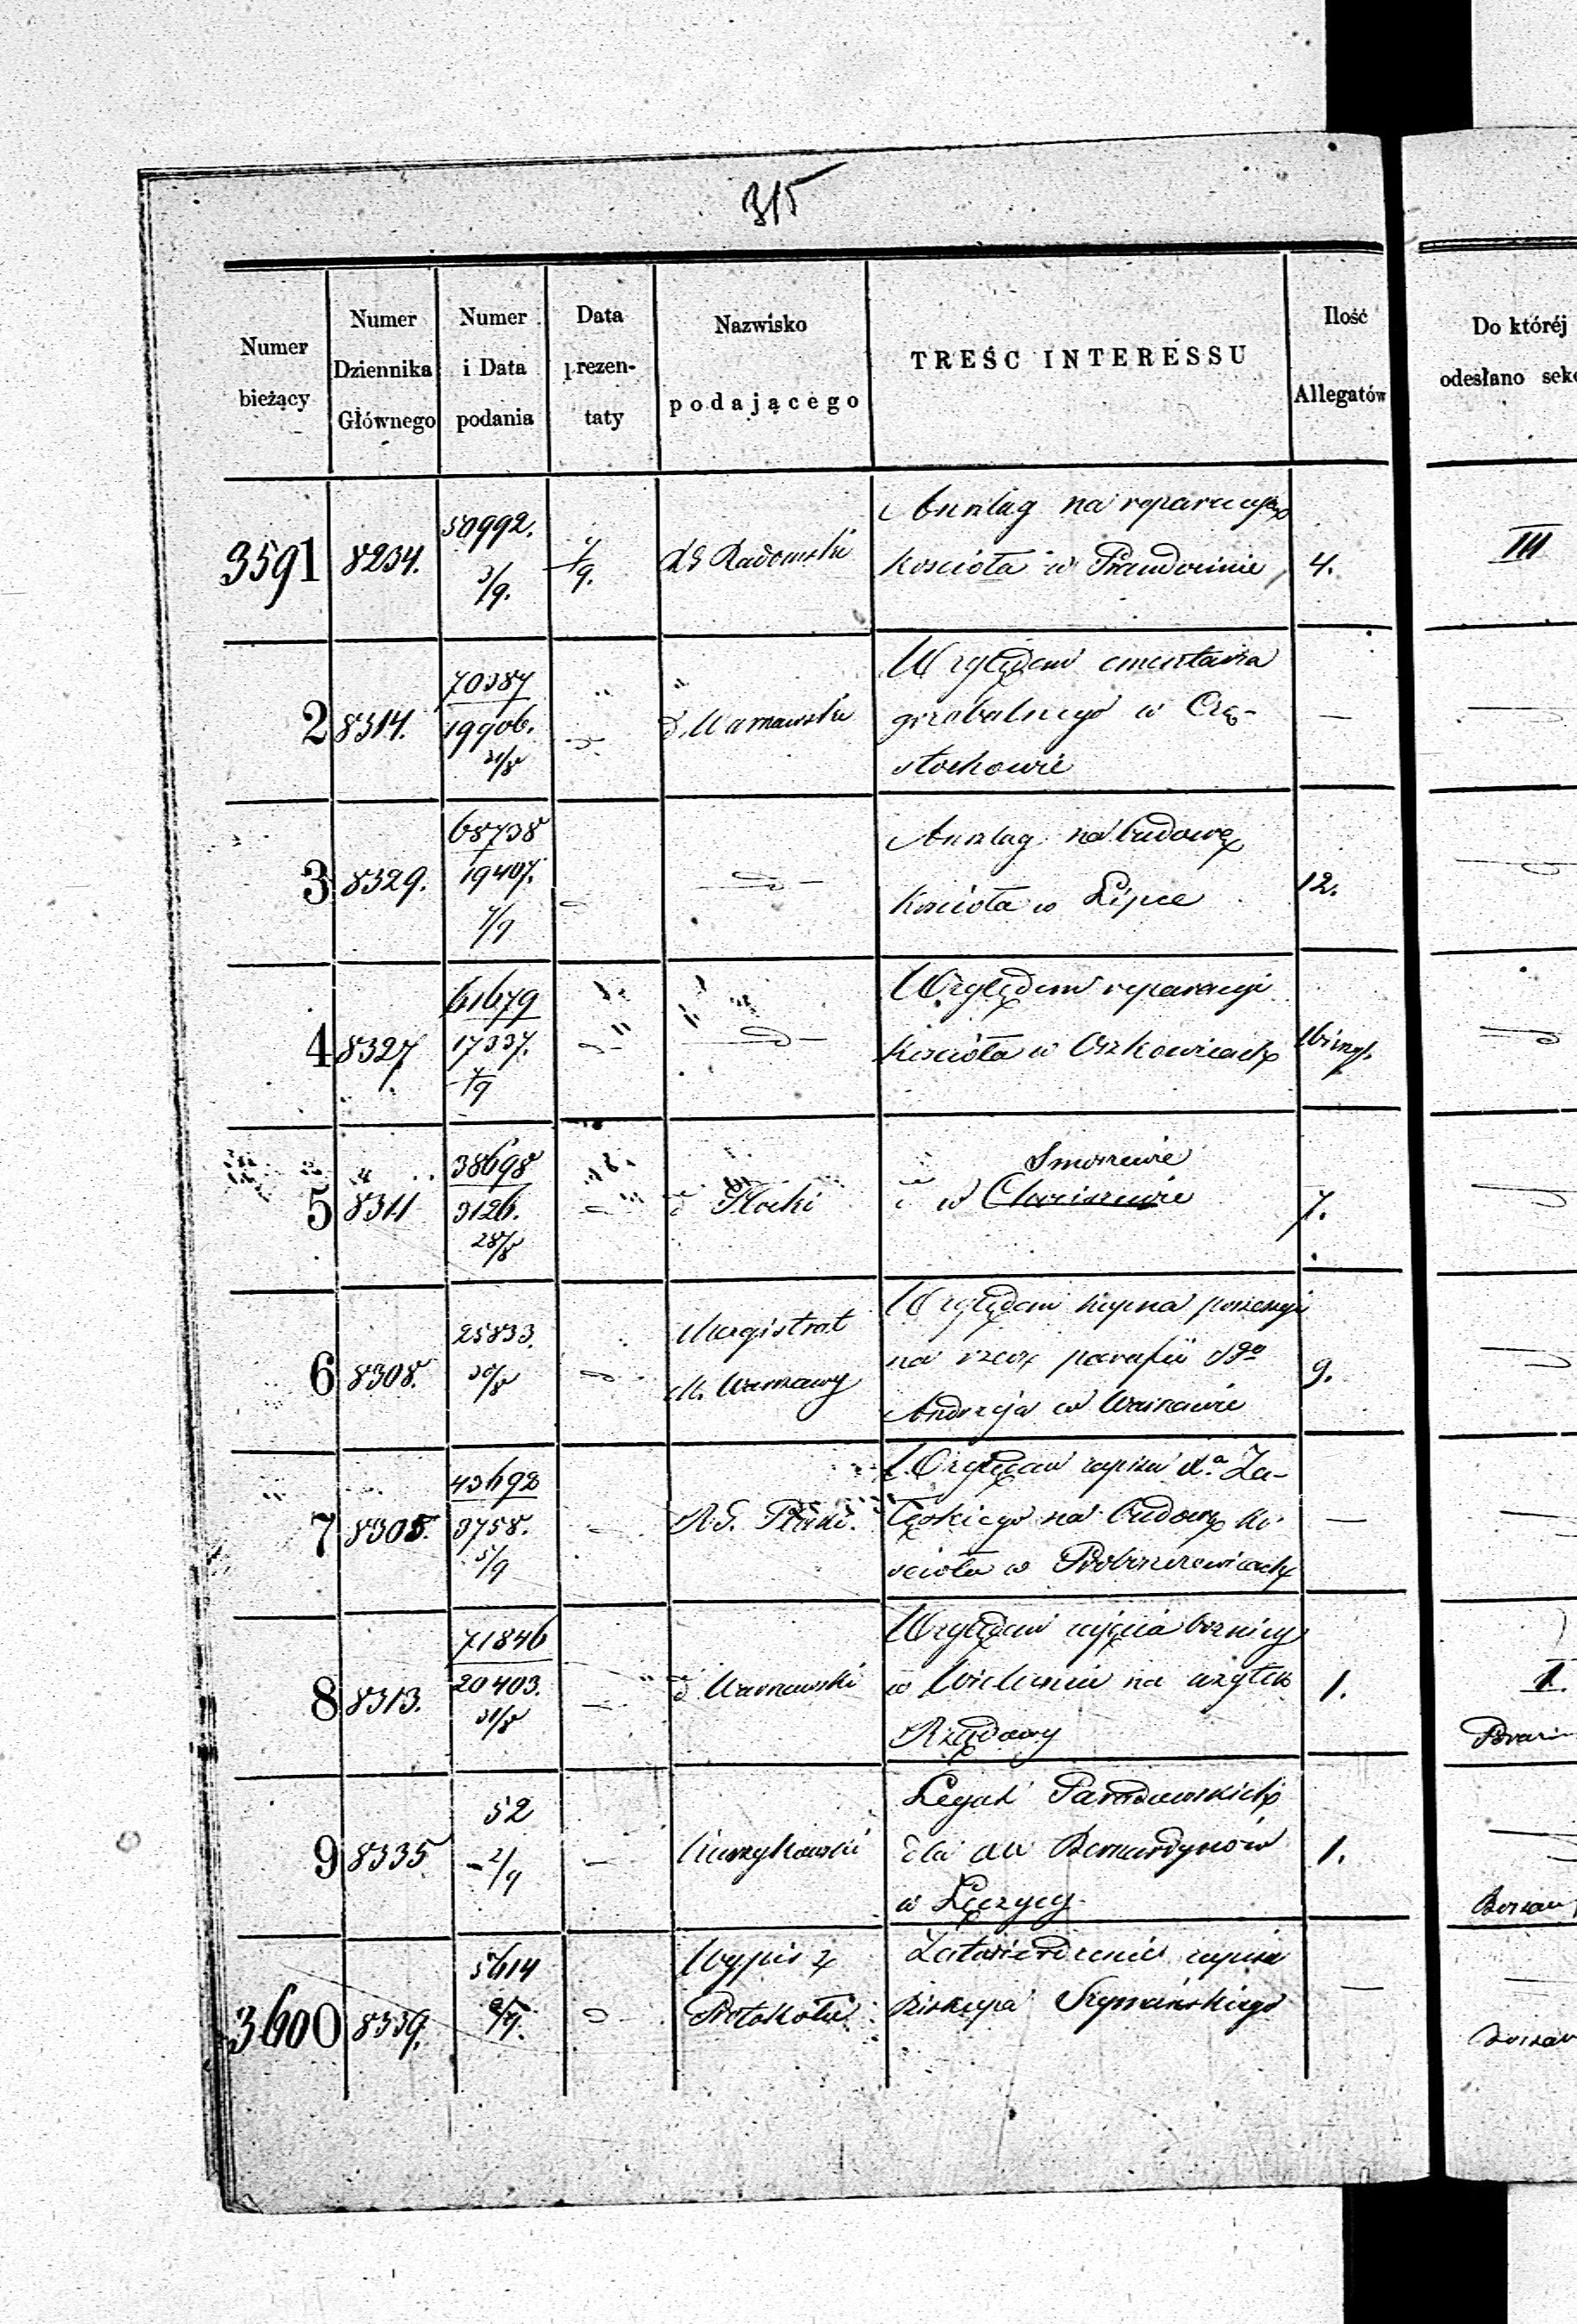 315
Numer bieżący
Numer Dziennika Głównego
Numer i Data podania
Data prezen- taty
Nazwisko podającego
TREŚC INTERESSU
Ilość Allegatów
Do któréj odesłano
3591 8234. 50992. 3/9. 4/9. RG Radomski
Anszlag na reparacyą
kościoła w 4. III
2 8314. 70387
19906. 31/8 d. Warszawski
Względem cmentarza
grzebalnego w Czę-
stochowie —
3 8329. 68738
19407. 4/9
Anszlag na budowę
kościoła w Lipce 12.
4 8327 61679
17337. 4/9
Względem reparacyi
kościoła w
5 8311 38698
3126. 28/8 d Płocki
Smoszewie
i w 7.
6 8308. 25833. 30/8
Magistrat
M. Warszawy
Względem kupna possesyi
na rzecz parafii Sgo
Andrzeja w Warszawie 9.
7 8305. 43692
3758. 5/9 R.G. Płocki.
Względem zapisu Za-
łęskiego na budowę ko-
ścioła w —
8 8313. 71846
20403. 31/8 d Warszawski
Względem zajęcia boznicy
w Wieluniu na użytek
Rządowy 1. I.
9 8335 52
2/9
Legat
dla XX Bernardynów
w Łęczycy 1.
3600 8339. 5614
Wypis z
Protokołu
Zatwierdzenie zapisu
Biskupa Szymańskiego —